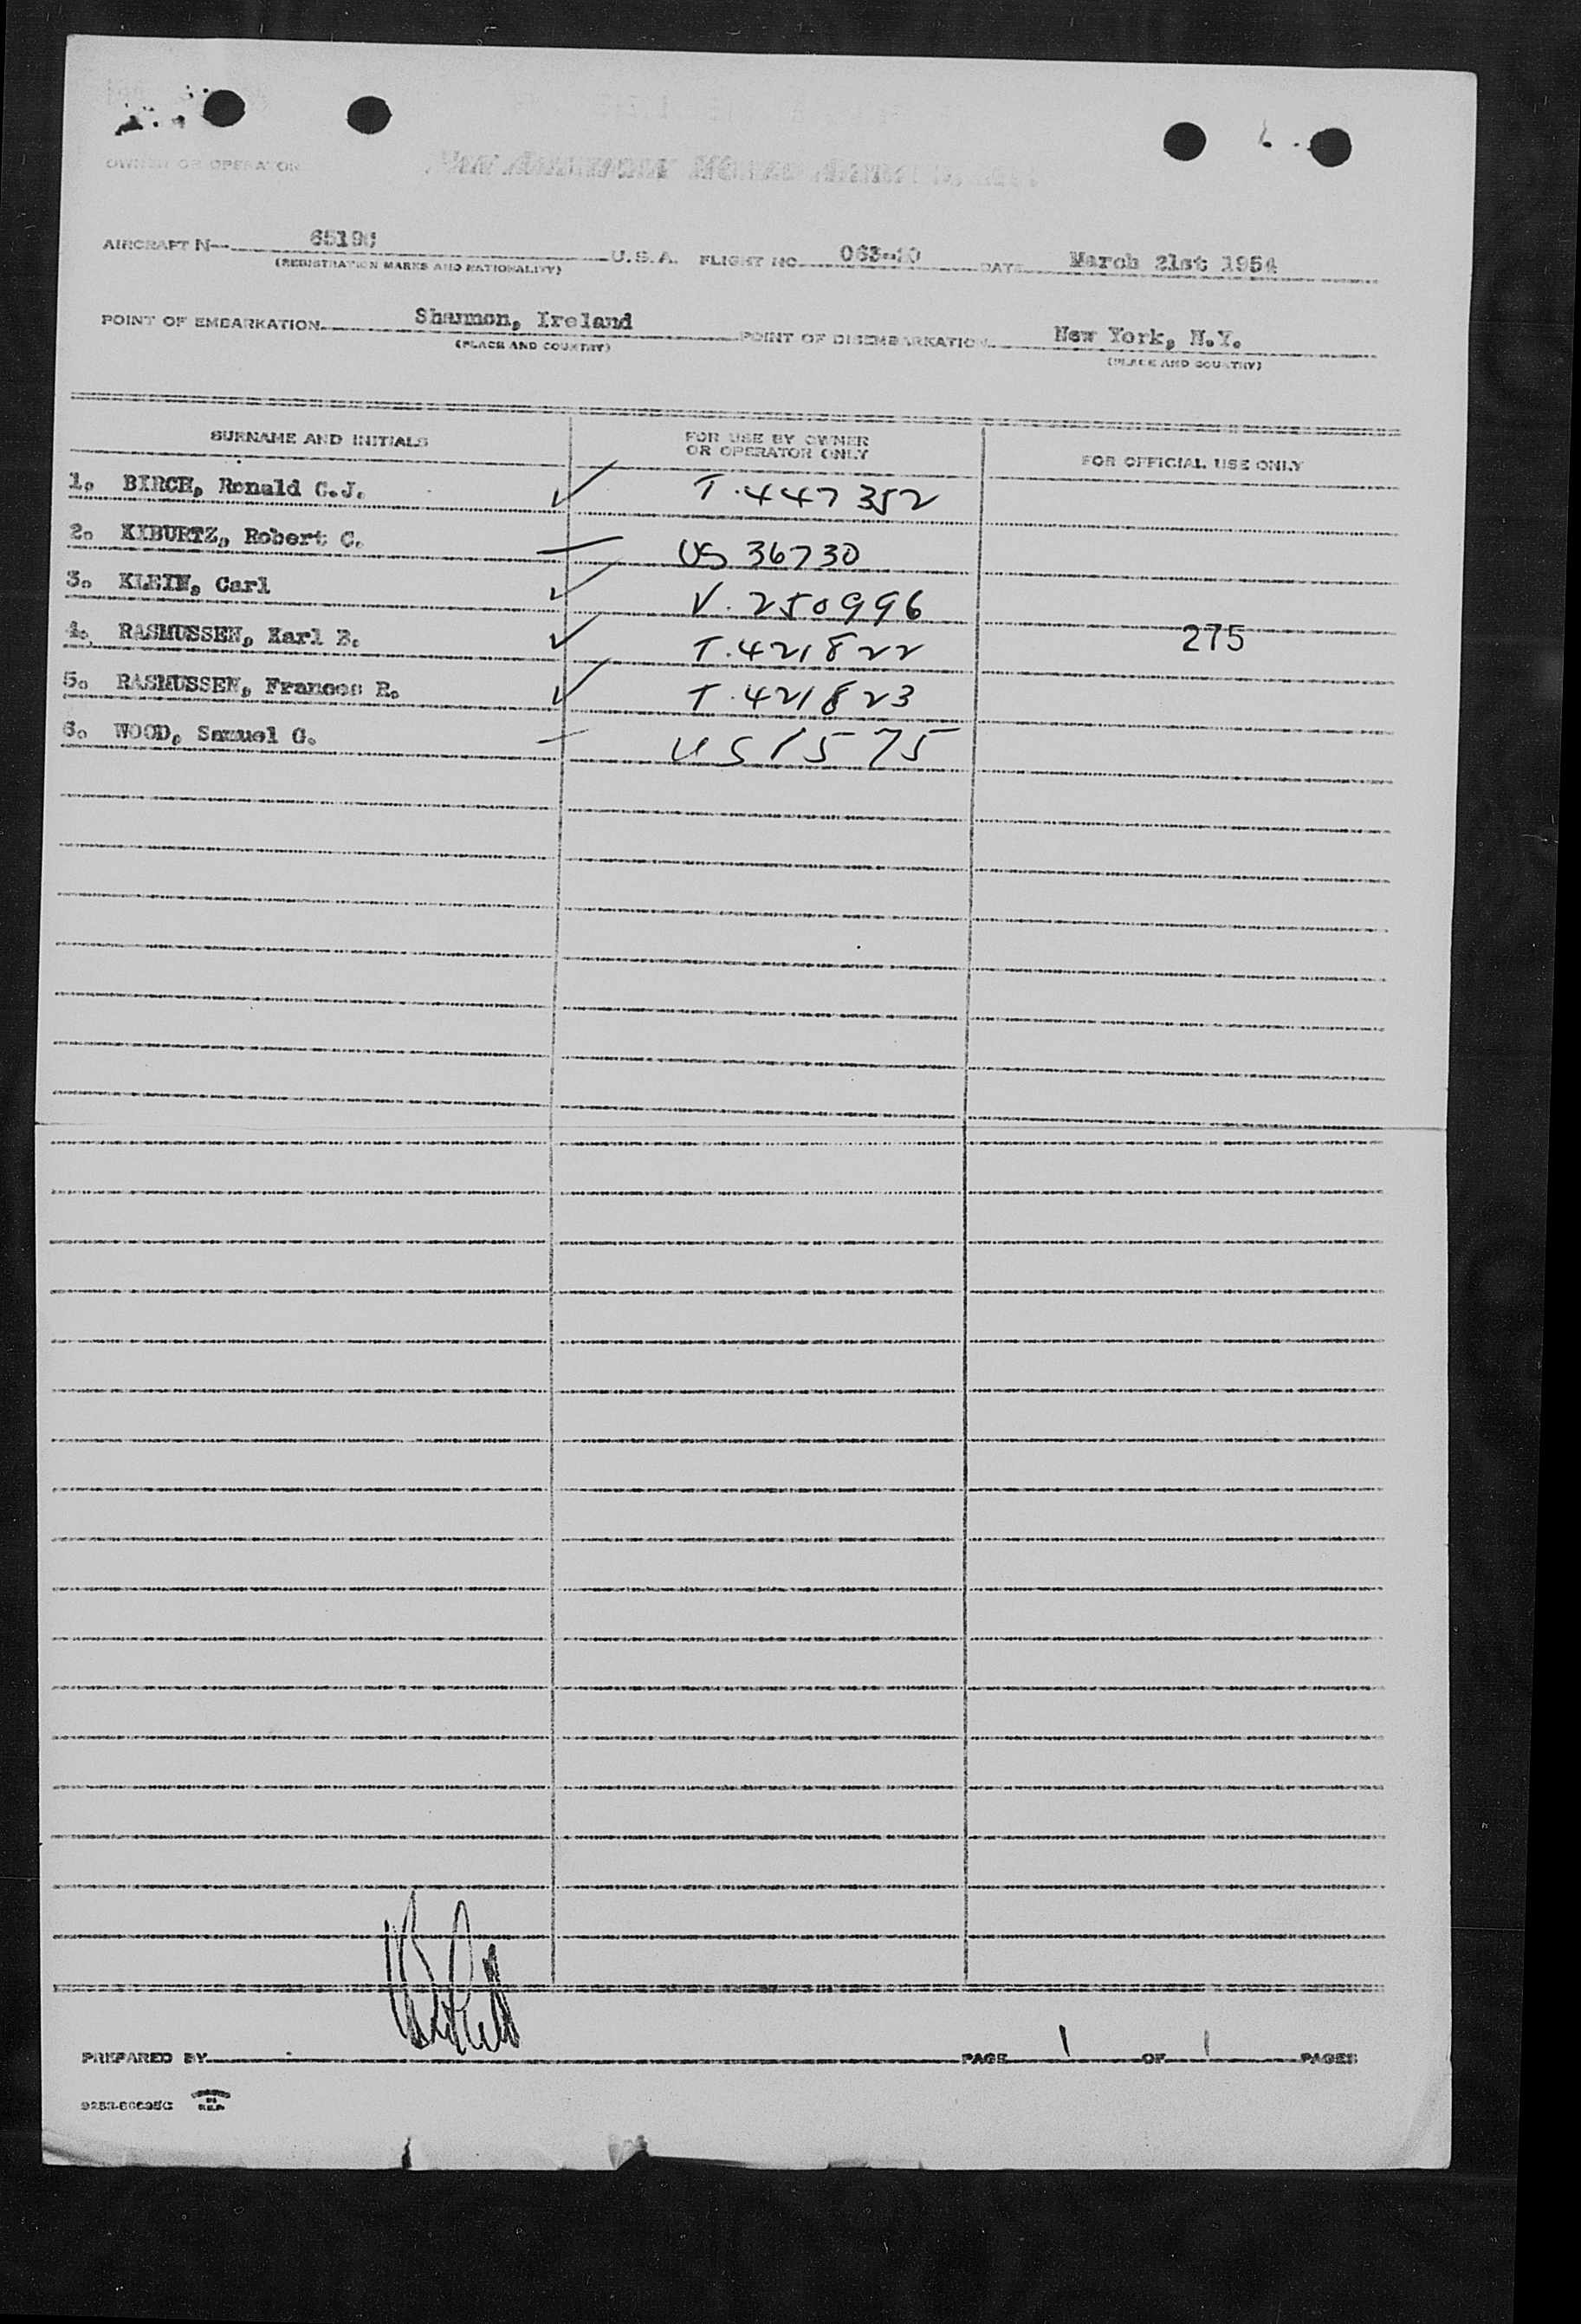 OWNER OR OPERATOR PAN AMERICAN WORLD
AIRCRAFT N 6519C U.S.A. FLIGHT NO. 063-20 DATE March 21st 1954
(REGISTRATION MARKS AND NATIONALITY)
POINT OF EMBARKATION Shannon, Ireland POINT OF DISEMBARKATION New York, N.Y.
(PLACE AND COUNTRY) (PLACE AND COUNTRY)
SURNAME AND INITIALS FOR USE BY OWNER OR OPERATOR ONLY FOR OFFICIAL USE ONLY
1. BIRCH, Ronald C.J. ✓ T.447352
2. KYBURTZ, Robert C. — US 36730
3. KLEIN, Carl ✓ V.250996
4. RASMUSSEN, Karl B. ✓ T.421822 275
5. RASMUSSEN, Frances R. ✓ T.421823
6. WOOD, Samuel G. — US 1575
PREPARED BY PAGE 1 OF 1 PAGES